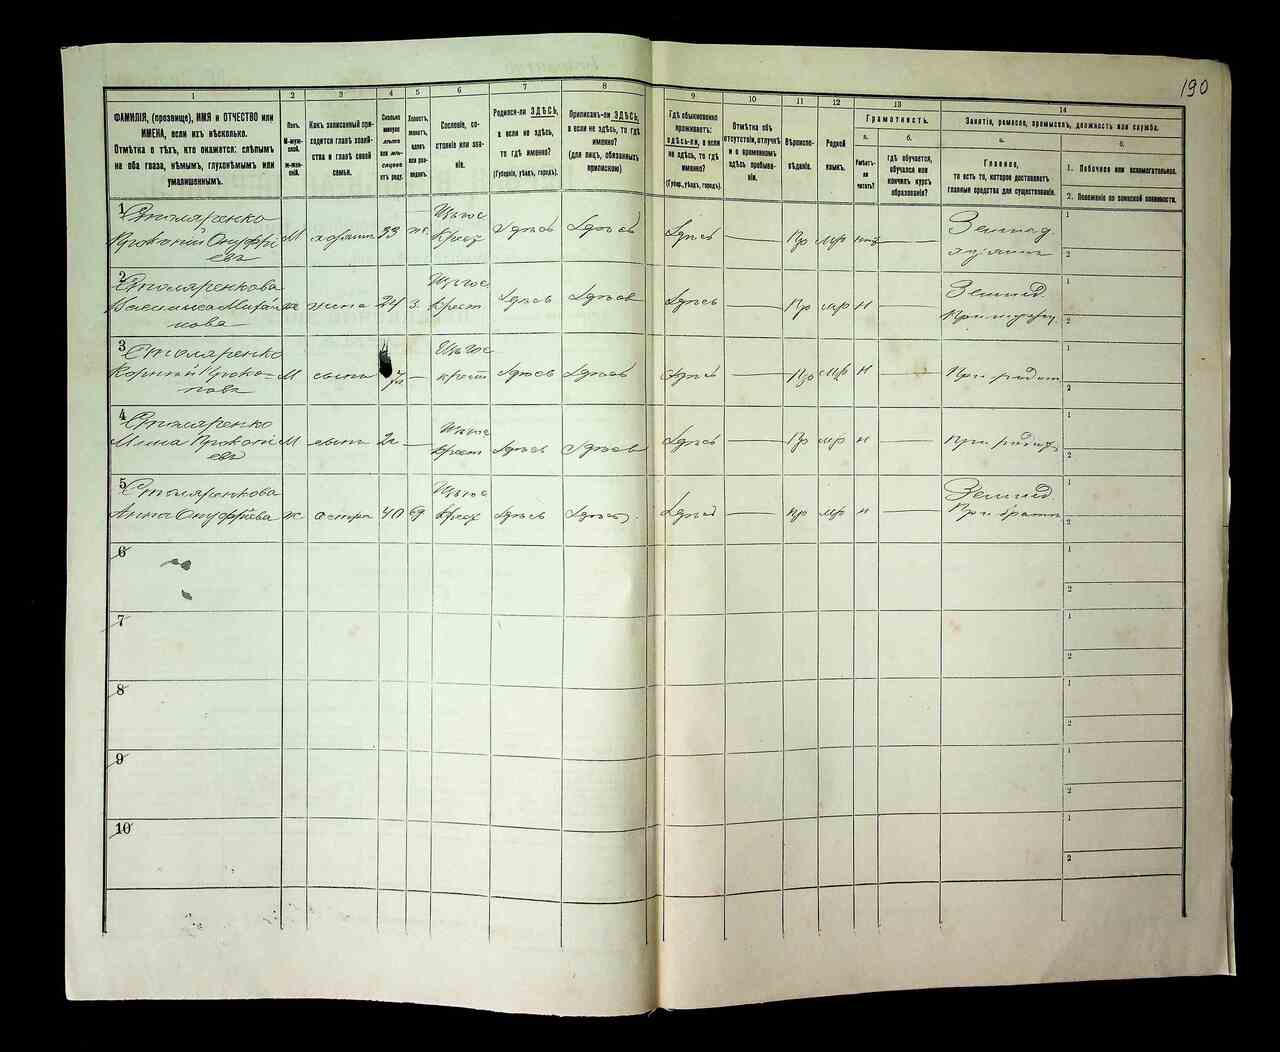 190
1 2 3 4 5 6 7 8 9 10 11 12 13 14
ФАМИЛІЯ, (прозвище), ИМЯ и ОТЧЕСТВО или
ИМЕНА, если ихъ нѣсколько.
Отмѣтка о тѣхъ, кто окажется: слѣпымъ
на оба глаза, нѣмымъ, глухонѣмымъ или
умалишеннымъ.
Полъ.
М-муж-
ской.
ж-жен-
скій.
Какъ записанный при-
ходится главѣ хозяй-
ства и главѣ своей
семьи.
Сколько
минуло
лѣтъ
или мѣ-
сяцевъ
отъ роду.
Холостъ,
женатъ,
вдовъ
или раз-
веденъ.
Сословіе, со-
стояніе или зва-
ніе.
Родился-ли ЗДѢСЬ,
а если не здѣсь,
то гдѣ именно?
(Губернія, уѣздъ, городъ).
Приписанъ-ли ЗДѢСЬ,
а если не здѣсь, то гдѣ
именно?
(для лицъ, обязанныхъ
припискою)
Гдѣ обыкновенно
проживаетъ:
здѣсь-ли, а если
не здѣсь, то гдѣ
именно?
(Губер., уѣздъ, городъ).
Отмѣтка объ
отсутствіи, отлучкѣ
и о временномъ
здѣсь пребыва-
ніи.
Вѣроиспо-
вѣданіе.
Родной
языкъ.
Грамотность.
а.
Умѣетъ-
ли
читать?
б.
гдѣ обучается,
обучался или
кончилъ курсъ
образованія?
Занятіе, ремесло, промыселъ, должность или служба.
а.
Главное,
то есть то, которое доставляетъ
главныя средства для существованія.
б.
1. Побочное или вспомогательное.
2. Положеніе по воинской повинности.
1 Столяренко
Прокопій Онуфрі
евъ
М
хозяинъ
33
Крест
Здѣсь
Здѣсь
Здѣсь
Пр
мр
Землед
хозяинъ
1
2
2 Столяренкова
нова
ж
жена
24
З
Крест
Здѣсь
Здѣсь
Здѣсь
Пр
мр
н
Землед
1
2
3 Столяренко
Корній Проко-
повъ
М
сынъ
крест
Здѣсь
Здѣсь
Здѣсь
Пр
мр
н
При родит
1
2
4 Столяренко
Мина Прокопі
евъ
М
сынъ
2
Крест
Здѣсь
Здѣсь
Здѣсь
Пр
мр
н
При родит
1
2
5 Столяренкова
Анна Онуфріева
ж
сестра
40
Крест
Здѣсь
Здѣсь
Здѣсь
Пр
мр
н
Землед
При братѣ
1
2
6
1
2
7
1
2
8
1
2
9
1
2
10
1
2